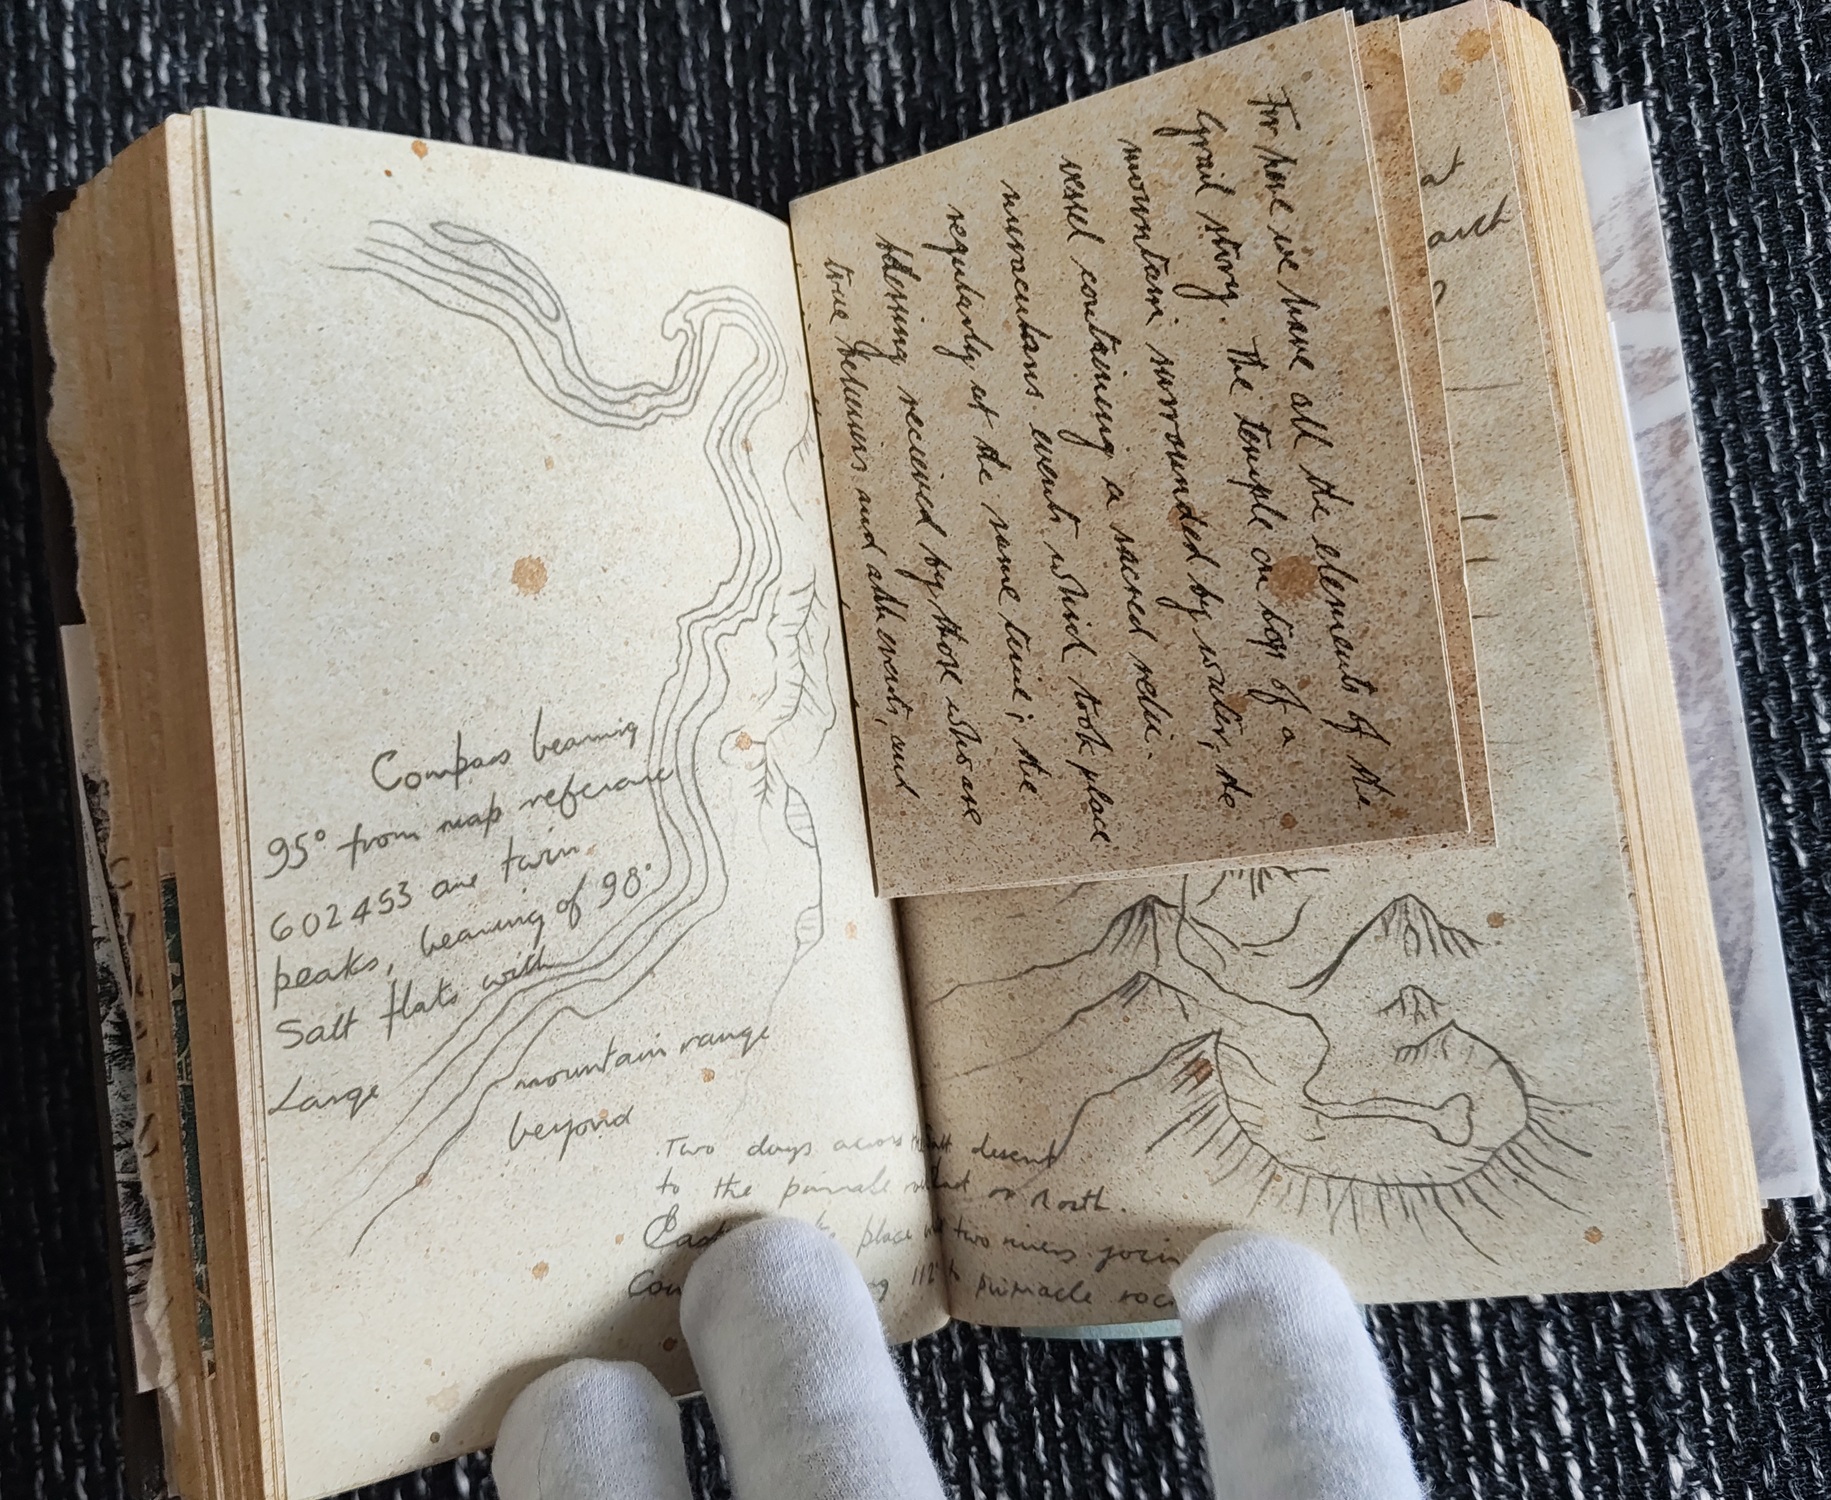 Compass bearing
95° from map reference
602453 are twin
peaks, bearing of 98°
Salt flats with
Large mountain range
beyond
Two days across salt descent
to the
place two rivers join
112° to Pinnacle
For here we have all the elements of the
Grail story. The temple on top of a
mountain surrounded by water, the
vessel containing a sacred relic.
miraculous events which took place
regularly at the same time, the
blessing received by those who are
true believers and all events, and